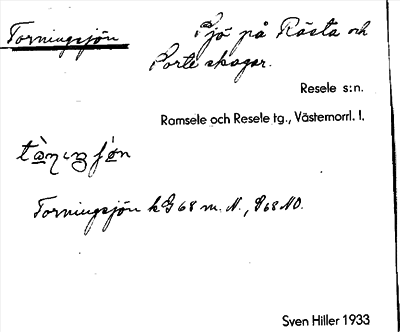 Torningsjön
Sjö på Råsta och
Porte skogar.
Resele s:n.
Ramsele och Resele tg., Västernorrl. l.
Torningsjön kG 68 m. N., G68NO.
Sven Hiller 1933